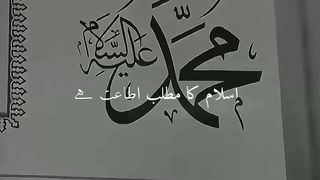 محمد عليه السلام
اسلام کا مطلب اطاعت ہے